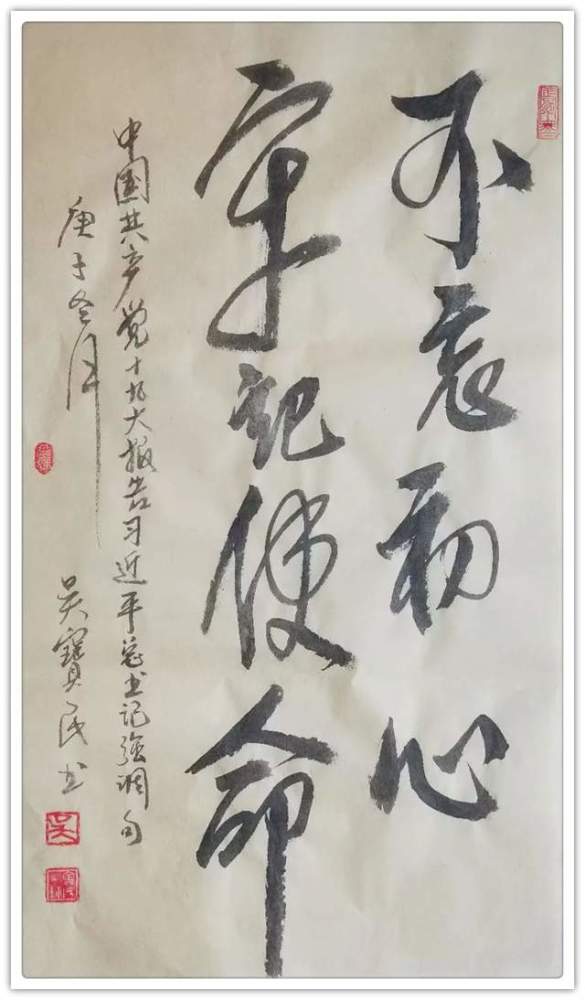 不忘初心
牢记使命
中国共产党十九大报告习近平总书记强调句
庚子冬月
吴寶民书
吴